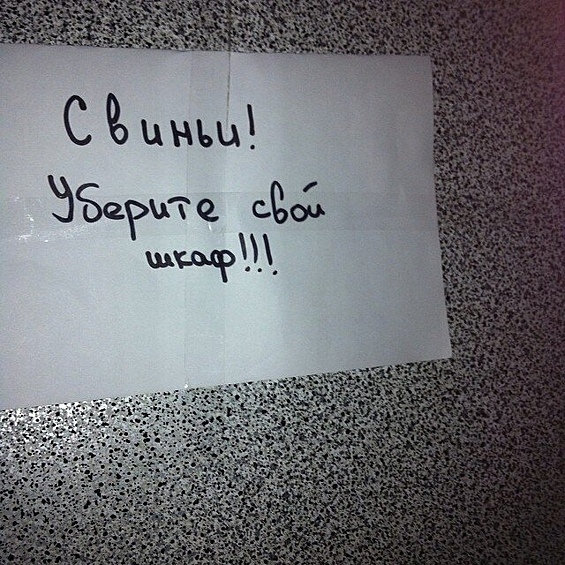 Свиньи!
Уберите свой
шкаф!!!